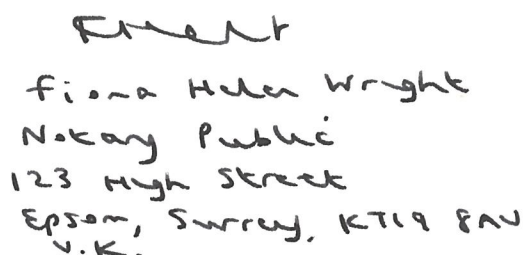 Fiona Helen Wright
Notary Public
123 High Street
Epsom, Surrey, KT19 8AU
U.K.